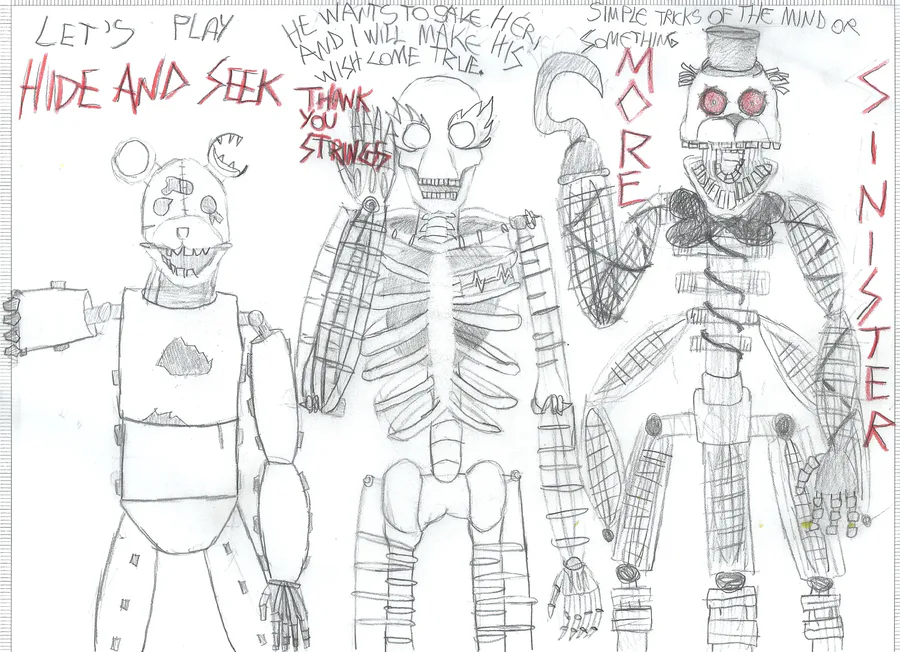 LET'S PLAY
HIDE AND SEEK
HE WANTS TO SAVE HER,
AND I WILL MAKE HIS
WISH COME TRUE.
THANK
YOU
STRINGS
SIMPLE TRICKS OF THE MIND OR
SOMETHING
MORE
SINISTER